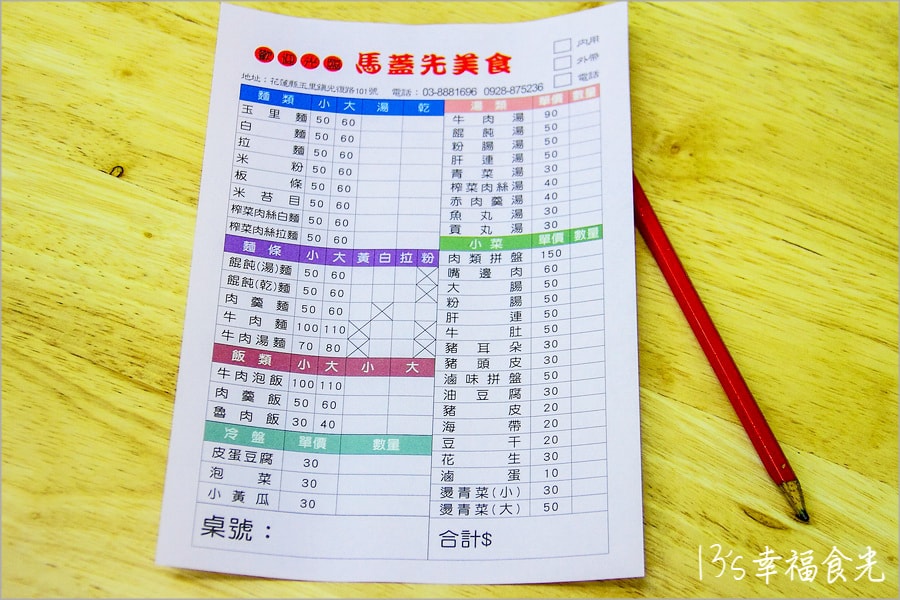 歡迎光臨 馬蓋先美食
內用
外帶
電話
地址：花蓮縣玉里鎮光復路101號 電話：03-8881696 0928-875236
麵類 小 大 湯 乾
玉里麵 50 60
白麵 50 60
拉麵 50 60
米粉 50 60
板條 50 60
米苔目 50 60
榨菜肉絲白麵 50 60
榨菜肉絲拉麵 50 60
麵條 小 大 黃 白 拉 粉
餛飩(湯)麵 50 60
餛飩(乾)麵 50 60
肉羹麵 50 60
牛肉麵 100 110
牛肉湯麵 70 80
飯類 小 大 小 大
牛肉泡飯 100 110
肉羹飯 50 60
魯肉飯 30 40
冷盤 單價 數量
皮蛋豆腐 30
泡菜 30
小黃瓜 30
桌號：
湯類 單價 數量
牛肉湯 90
餛飩湯 50
粉腸湯 50
肝連湯 50
青菜湯 30
榨菜肉絲湯 40
赤肉羹湯 40
魚丸湯 30
貢丸湯 30
小菜 單價 數量
肉類拼盤 150
嘴邊肉 60
大腸 50
粉腸 50
肝連 50
牛肚 50
豬耳朵 30
豬頭皮 30
滷味拼盤 50
油豆腐 30
豬皮 20
海帶 20
豆干 20
花生 30
滷蛋 10
燙青菜(小) 30
燙青菜(大) 50
合計$
13's幸福食光